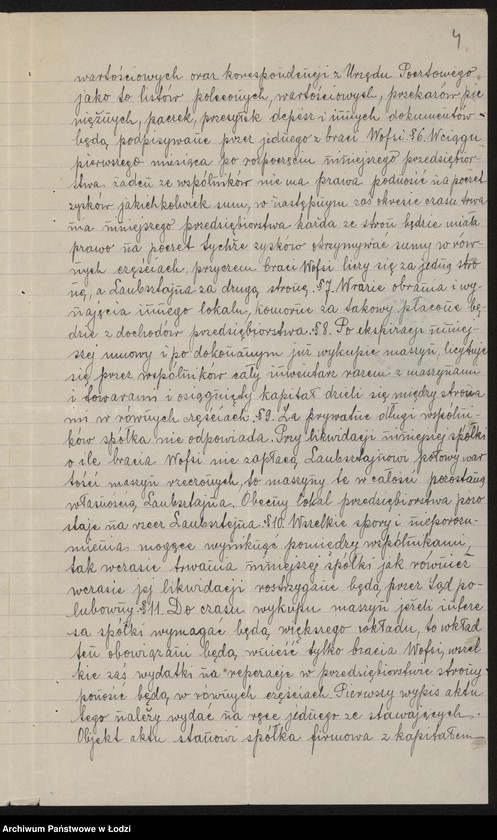 4
wartościowych oraz korespondencji z Urzędu Pocztowego
jako to listów poleconych, wartościowych, przekazów pie
niężnych, paczek, przesyłek depesz i innych dokumentów
będą podpisywane przez jednego z braci Wofsi. §6. W ciągu
pierwszego miesiąca po rozpoczęciu niniejszego przedsiębior-
stwa żaden ze wspólników nie ma prawa podnosić na poczet
zysków jakichkolwiek sum, w następnym zaś okresie czasu trwa
nia niniejszego przedsiębiorstwa każda ze stron będzie miała
prawo na poczet tychże zysków otrzymywać sumy w rów-
nych częściach, przyczem braci Wofsi liczy się za jedną stro
nę, a Laubsztajna za drugą stronę. §7. W razie obrania i wy-
najęcia innego lokalu, komorne za takowy płacone bę
dzie z dochodów przedsiębiorstwa. §8. Po ekspiracji niniej-
szej umowy i po dokonanym już wykupie maszyn, licytuje
się przez wspólników cały inwentarz razem z maszynami
i towarami i osiągnięty kapitał dzieli się między strona
mi w równych częściach. §9. Za prywatne długi wspólni-
ków spółka nie odpowiada. Przy likwidacji niniejszej spółki
o ile bracia Wofsi nie zapłacą Laubsztajnowi połowy war
tości maszyn rzeczonych, to maszyny te w całości pozostaną
własnością Laubsztajna. Obecny lokal przedsiębiorstwa pozo
staje na rzecz Laubsztejna. §10. Wszelkie spory i nieporozu-
mienia mogące wyniknąć pomiędzy wspólnikami,
tak wczasie trwania niniejszej spółki jak również
wczasie jej likwidacji rozstrzygane będą przez Sąd po-
lubowny. §11. Do czasu wykupu maszyn jeżeli intere
sa spółki wymagać będą większego wkładu, to wkład
ten obowiązani będą wnieść tylko bracia Wofsi, wszel
kie zaś wydatki na reperacje w przedsiębiorstwie strony
ponosić będą w równych częściach. Pierwszy wypis aktu
tego należy wydać na ręce jednego ze stawających.
Objekt aktu stanowi spółka firmowa z kapitałem
Archiwum Państwowe w Łodzi